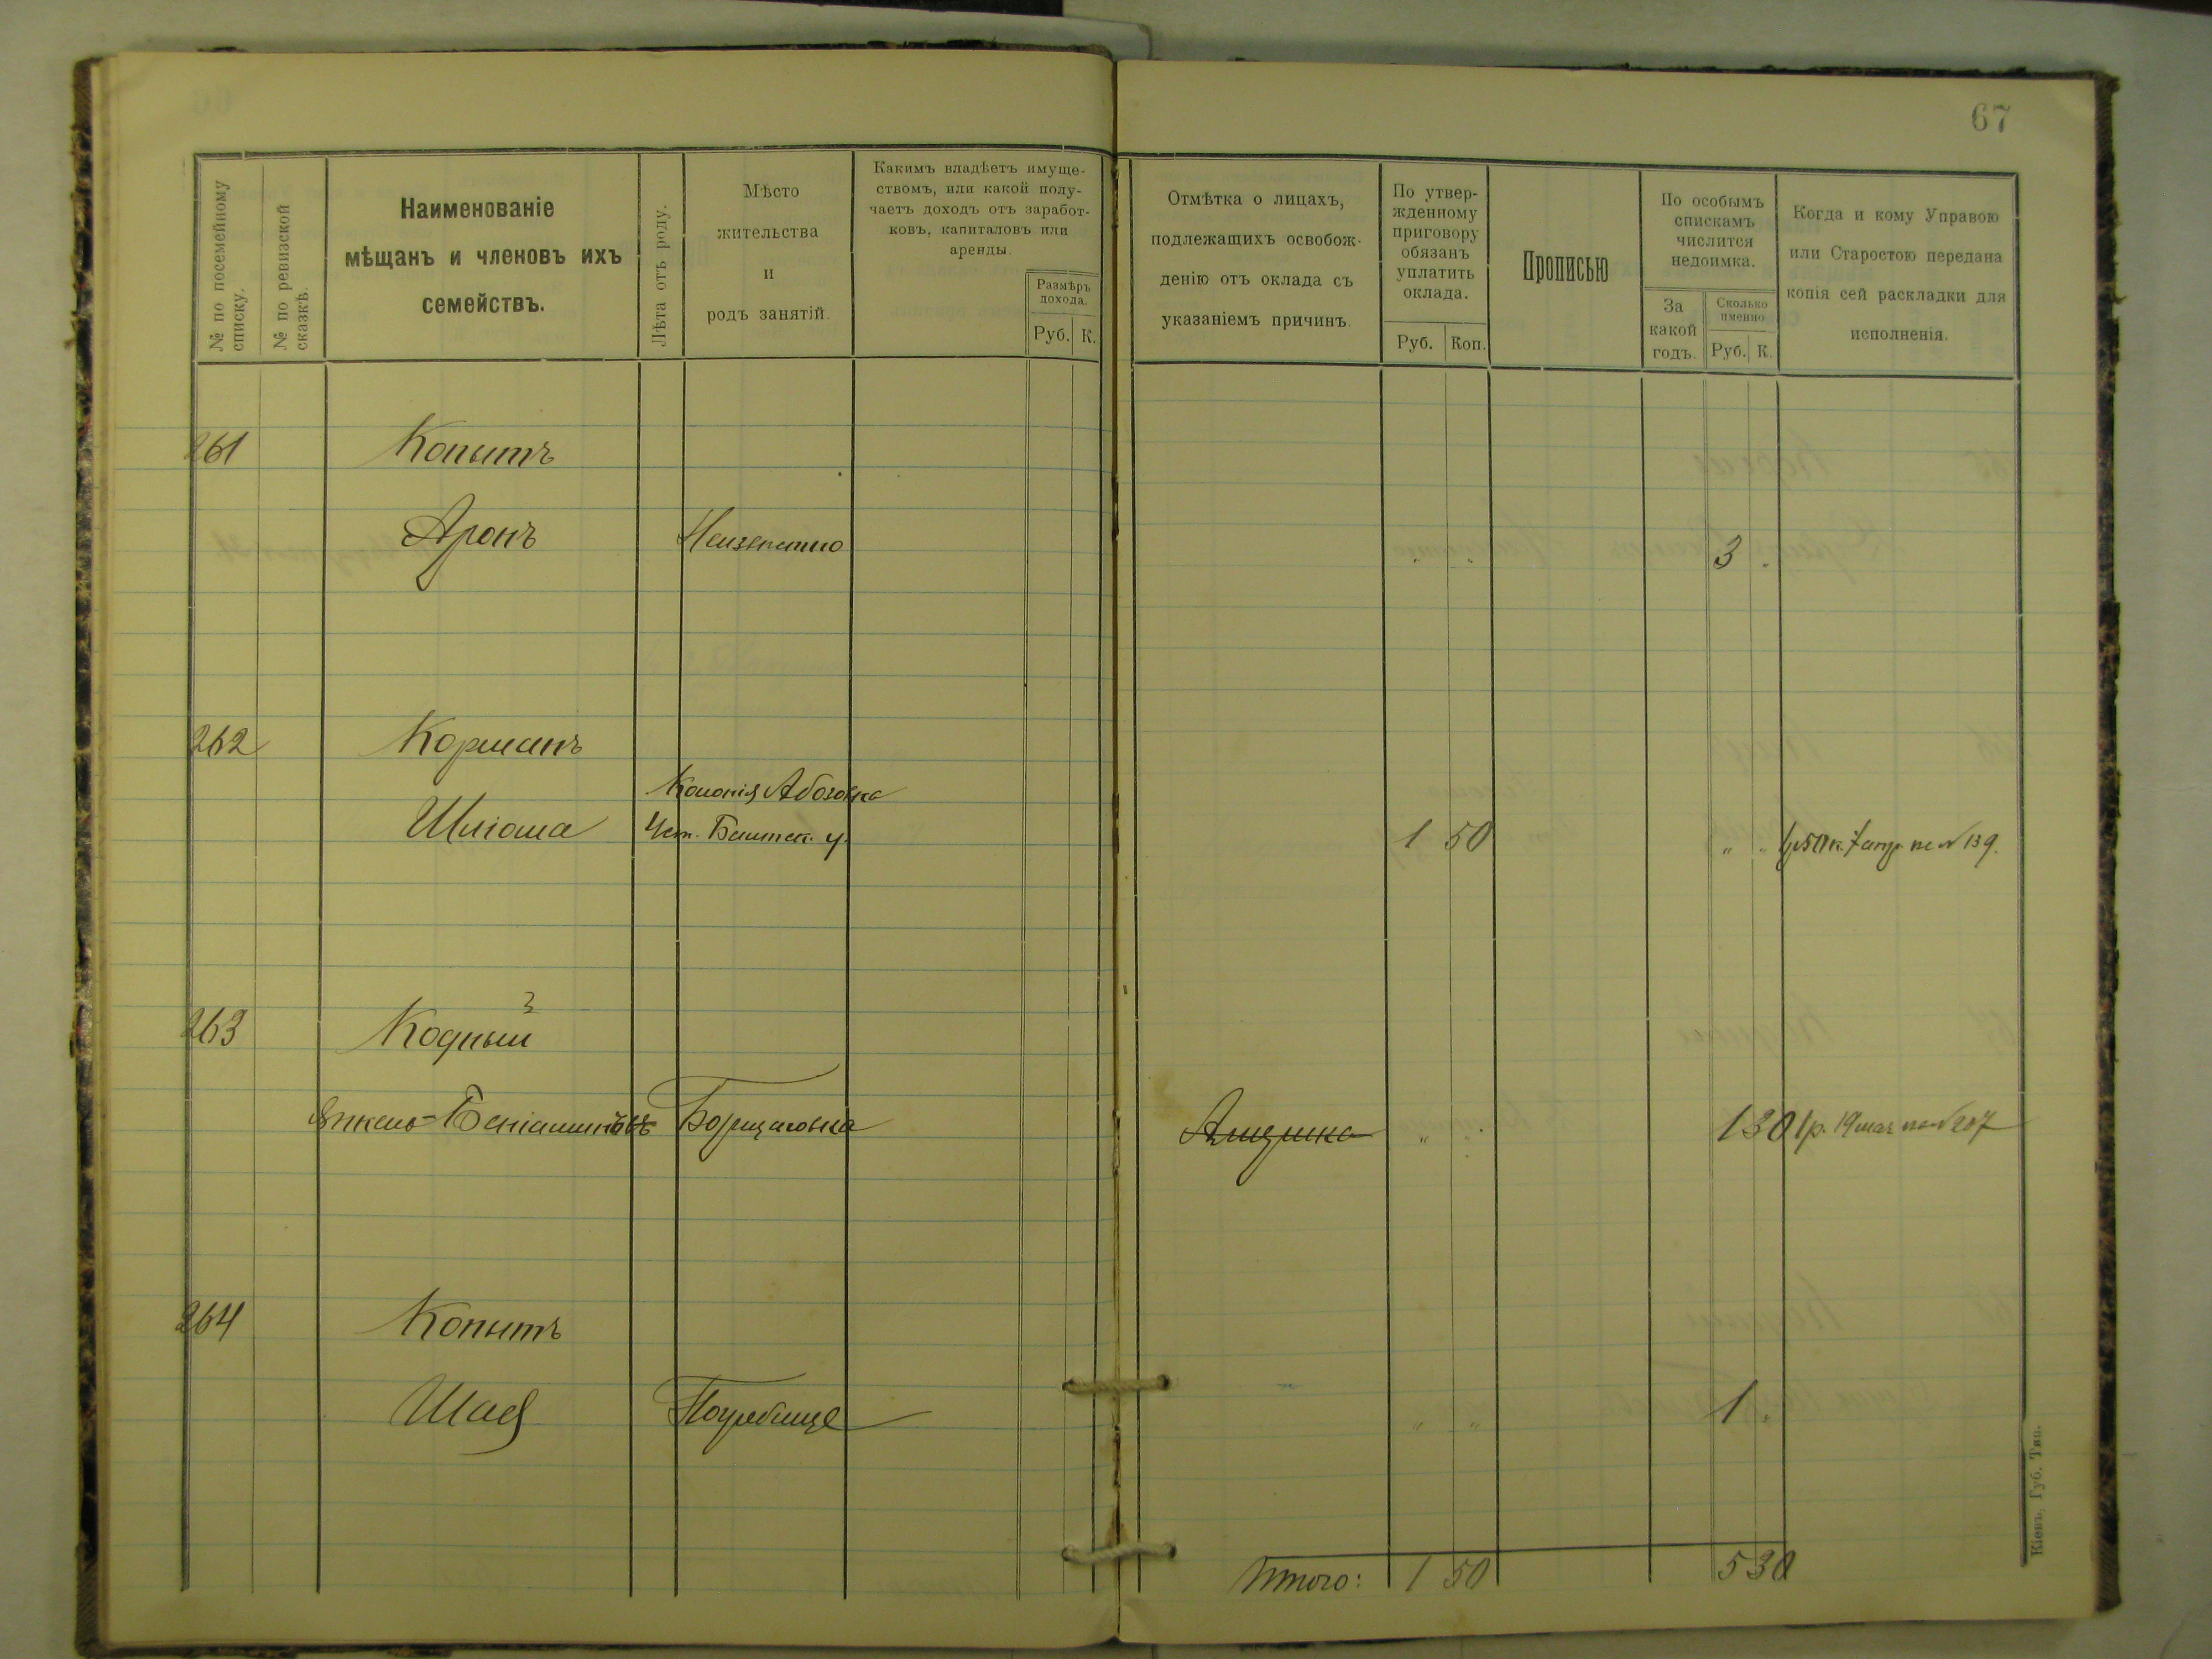 67
№ по посемейному списку.
№ по ревизской сказкѣ.
Наименованіе
мѣщанъ и членовъ ихъ
семействъ.
Лѣта отъ роду.
Мѣсто
жительства
и
родъ занятій.
Какимъ владѣетъ имуще-
ствомъ, или какой полу-
чаетъ доходъ отъ заработ-
ковъ, капиталовъ или
аренды.
Размѣръ
дохода.
Руб. К.
Отмѣтка о лицахъ,
подлежащихъ освобож-
денію отъ оклада съ
указаніемъ причинъ.
По утвер-
жденному
приговору
обязанъ
уплатить
оклада.
Руб. Коп.
Прописью
По особымъ
спискамъ
числится
недоимка.
За
какой
годъ.
Сколько
именно
Руб. К.
Когда и кому Управою
или Старостою передана
копія сей раскладки для
исполненія.
261 Копытъ
Аронъ Неизвѣстно " " 3 "
262 Корманъ
Колонія Абазовка
Шліома 1 50 " " 1р50к. 7 апр. № 139.
263 Кодный
Янкель-Беніаминъ Борщаговка " " 1 30 1р. 19 мая № 207
264 Копытъ
Шая Погребище " " 1 "
Итого: 1 50 5 30
Кіевъ. Губ. Тип.